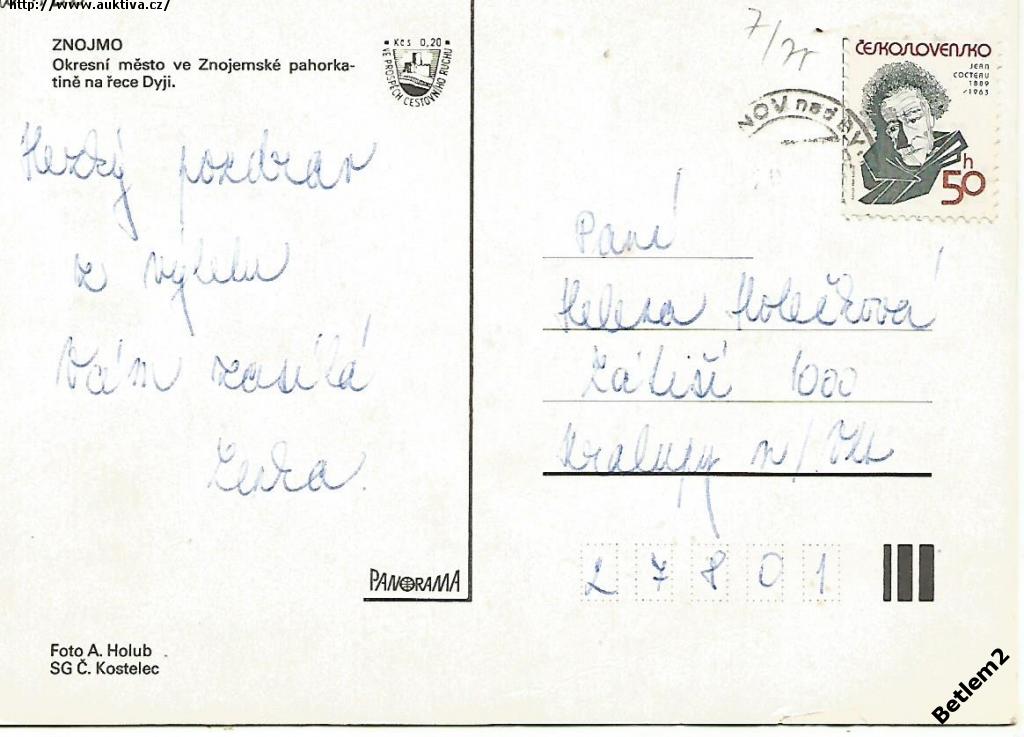 http://www.auktiva.cz/
ZNOJMO
Okresní město ve Znojemské pahorka-
tině na řece Dyji.
Kčs 0,20
VE PROSPĚCH CESTOVNÍHO RUCHU
Hezký pozdrav
z výletu
Vám zasílá
Lenka.
PANORAMA
Foto A. Holub
SG Č. Kostelec
7/
ČESKOSLOVENSKO
JEAN
COCTEAU
1889
/1963
50 h
NOV nad
Paní
Helena Holečková
Zátiší 1000
Kralupy n/Vlt
27801
Betlem2